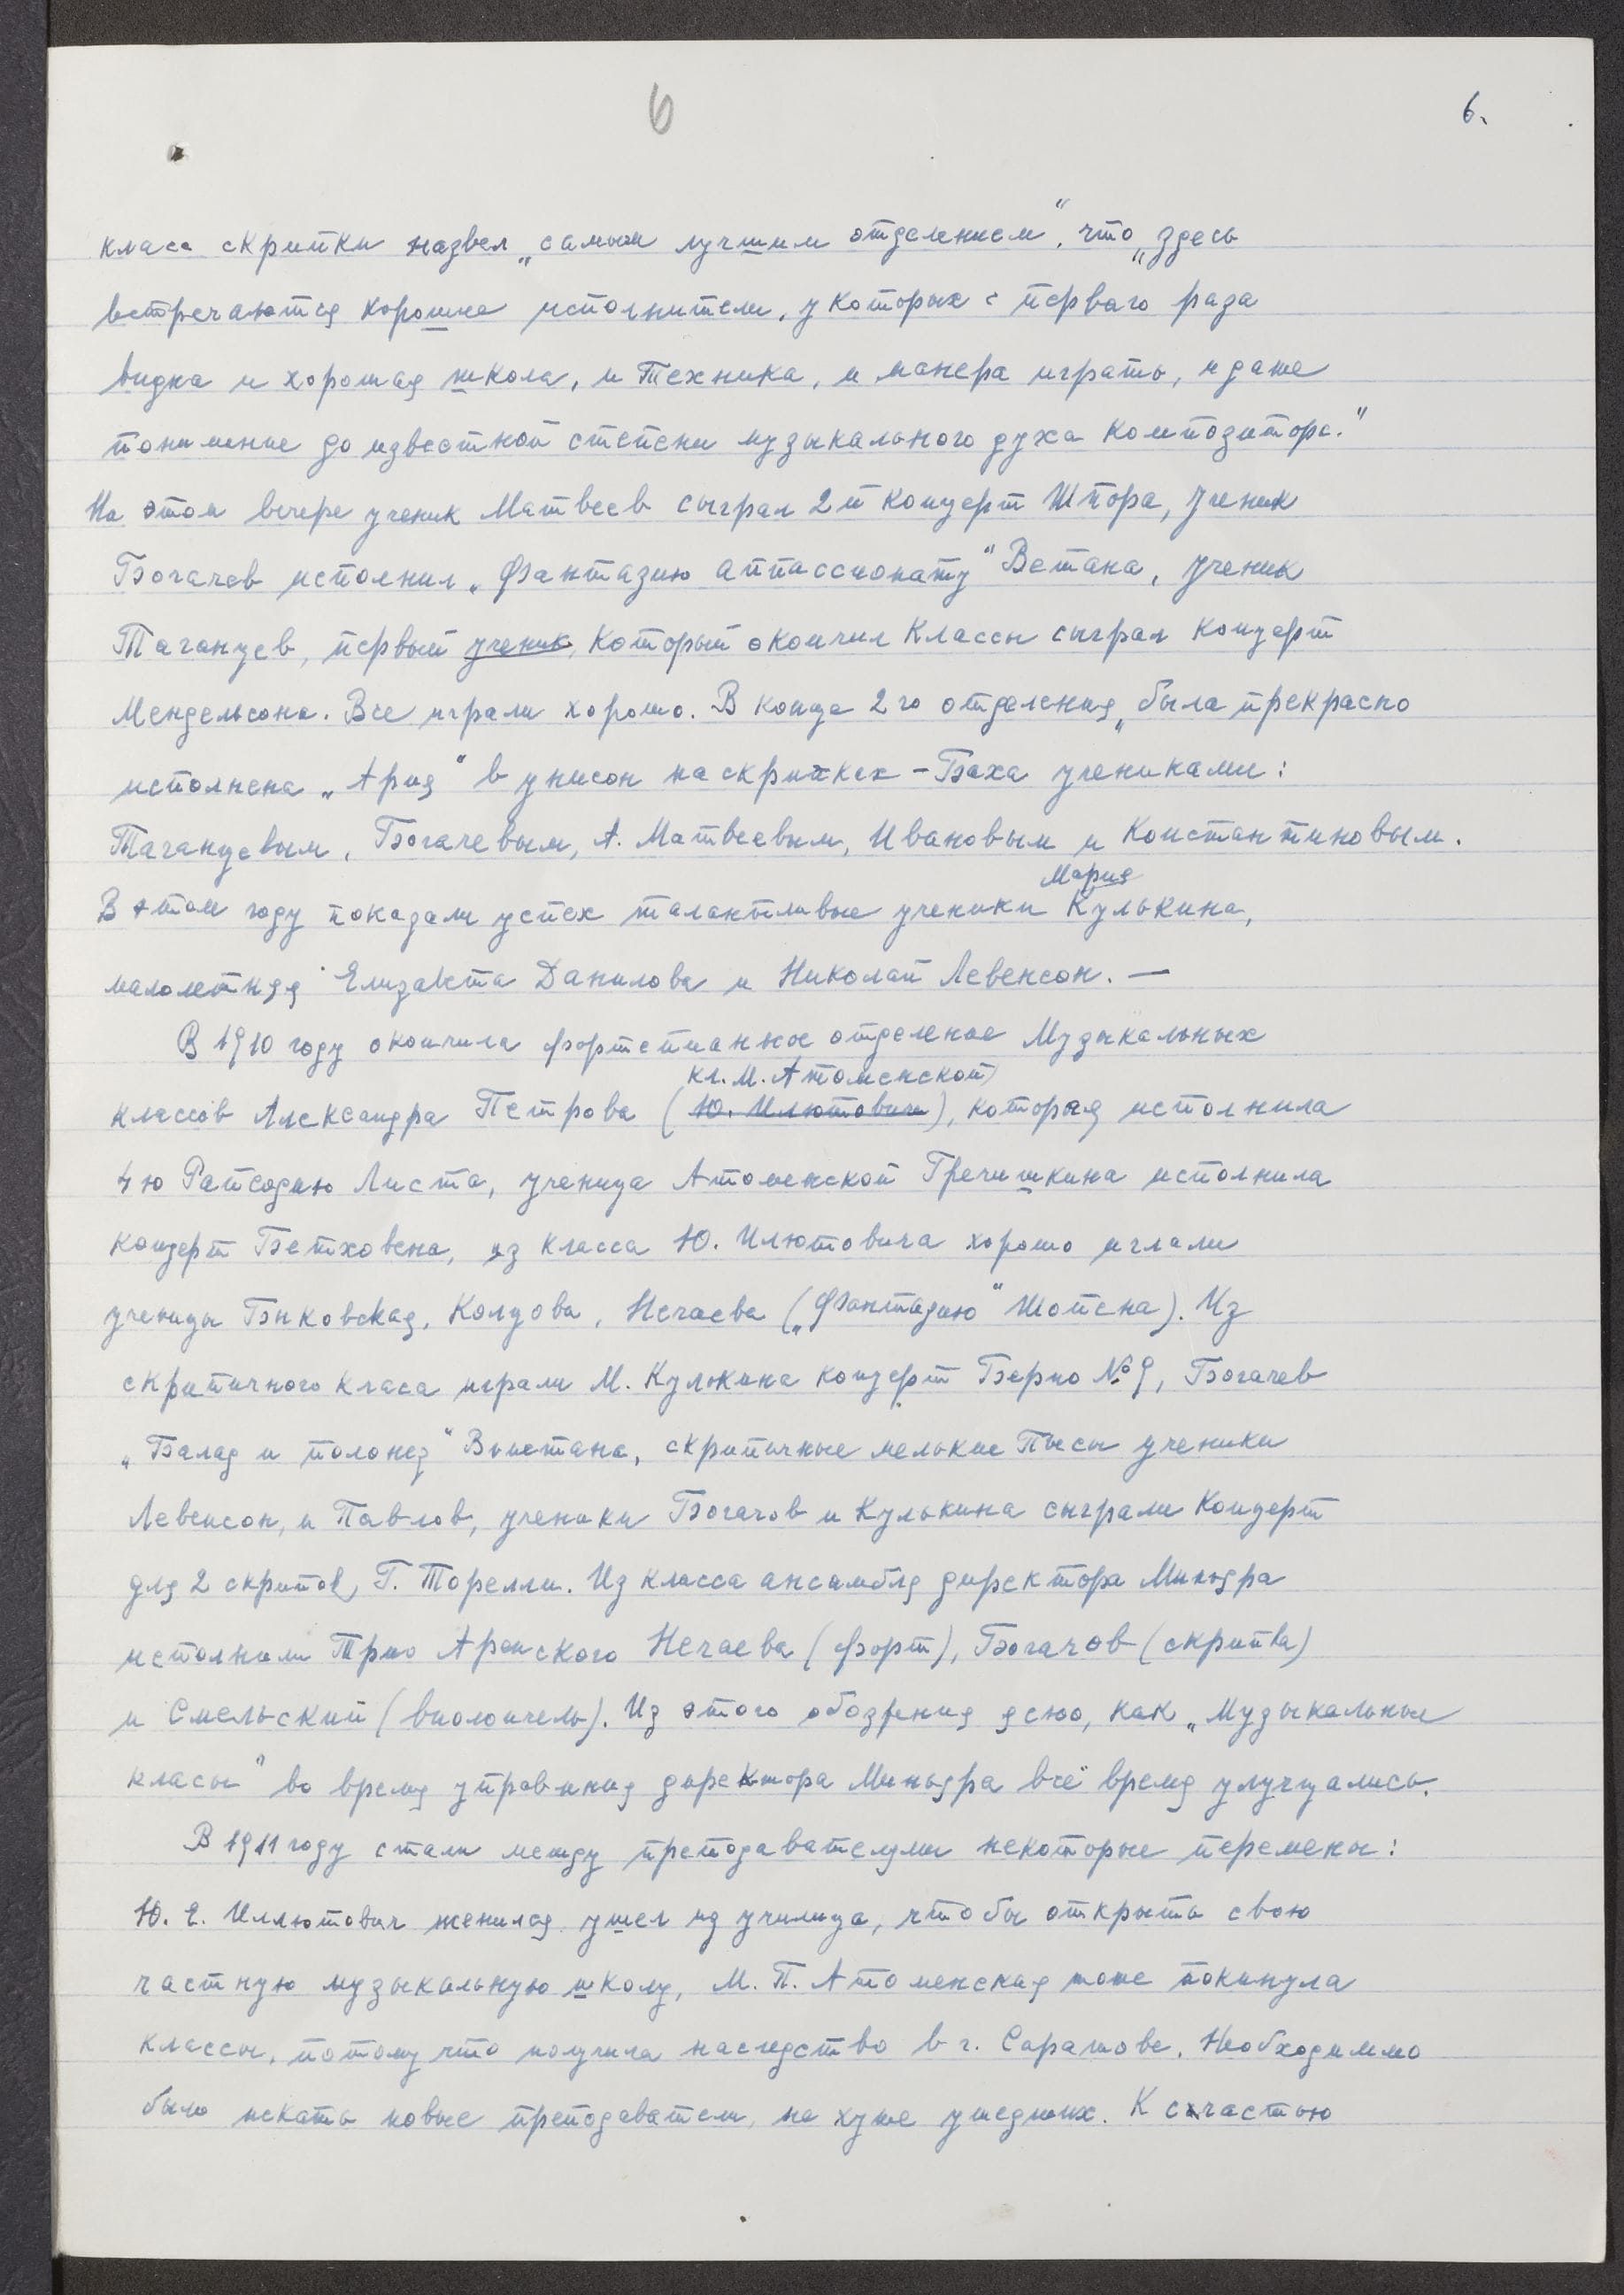 6
6.
класа скрипки назвел „самым лучшим отделением“, что „здесь
встречаются хорошие исполнители, у которых с перваго раза
видна и хорошая школа, и техника, и манера играть, и даже
понимение до известной степени музыкального духа композитора.“
На этом вечере ученик Матвеев сыграл 2й концерт Шпора, ученик
Богачев исполнил „Фантазию аппассионату“ Ветана, ученик
Таганцев, первый ученик, который окончил Классы сыграл концерт
Мендельсона. Все играли хорошо. В конце 2го отделения „была прекрасно
исполнена „Ария“ в унисон на скрипках – Баха учениками:
Таганцевым, Богачевым, А. Матвеевым, Ивановым и Константиновым.
Мария
В этом году показали успех талантливые ученики Кулькина,
малолетняя Елизавета Данилова и Николай Левенсон. —
В 1910 году окончила фортепианное отделение Музыкальных
кл. М. Атоменской
классов Александра Петрова (Ю. Илютовича), которая исполнила
4ю Рапсодию Листа, ученица Атоменской Гречишкина исполнила
концерт Бетховена, из класса Ю. Илютовича хорошо иглали
ученицы Быковская, Колцова, Нечаева („Фантазию“ Шопена). Из
скрипичного класа играли М. Кулькина концерт Берио № 9, Богачев
„Балад и полонез“ Вьиетана, скрипичные мелькие Пьесы ученики
Левенсон, и Павлов, ученики Богачов и Кулькина сыграли Концерт
для 2 скрипок, Г. Торелли. Из класса ансамбля директора Миньяра
исполнили Трио Аренского Нечаева (форт), Богачов (скрипка)
и Смельский (виолончель). Из этого обозрения ясно, как „Музыкальные
класы“ во время управения директора Миньяра всё время улучщались.
В 1911 году стали между преподавателями некоторые перемены:
Ю. Е. Иллютович женился ушел из училища, чтобы открыть свою
частную музыкальную школу, М. П. Атоменская тоже покинула
классы, потому что получила наследство в г. Саратове. Необходиммо
было искать новые преподаватели, не хуже ушедших. К счастью